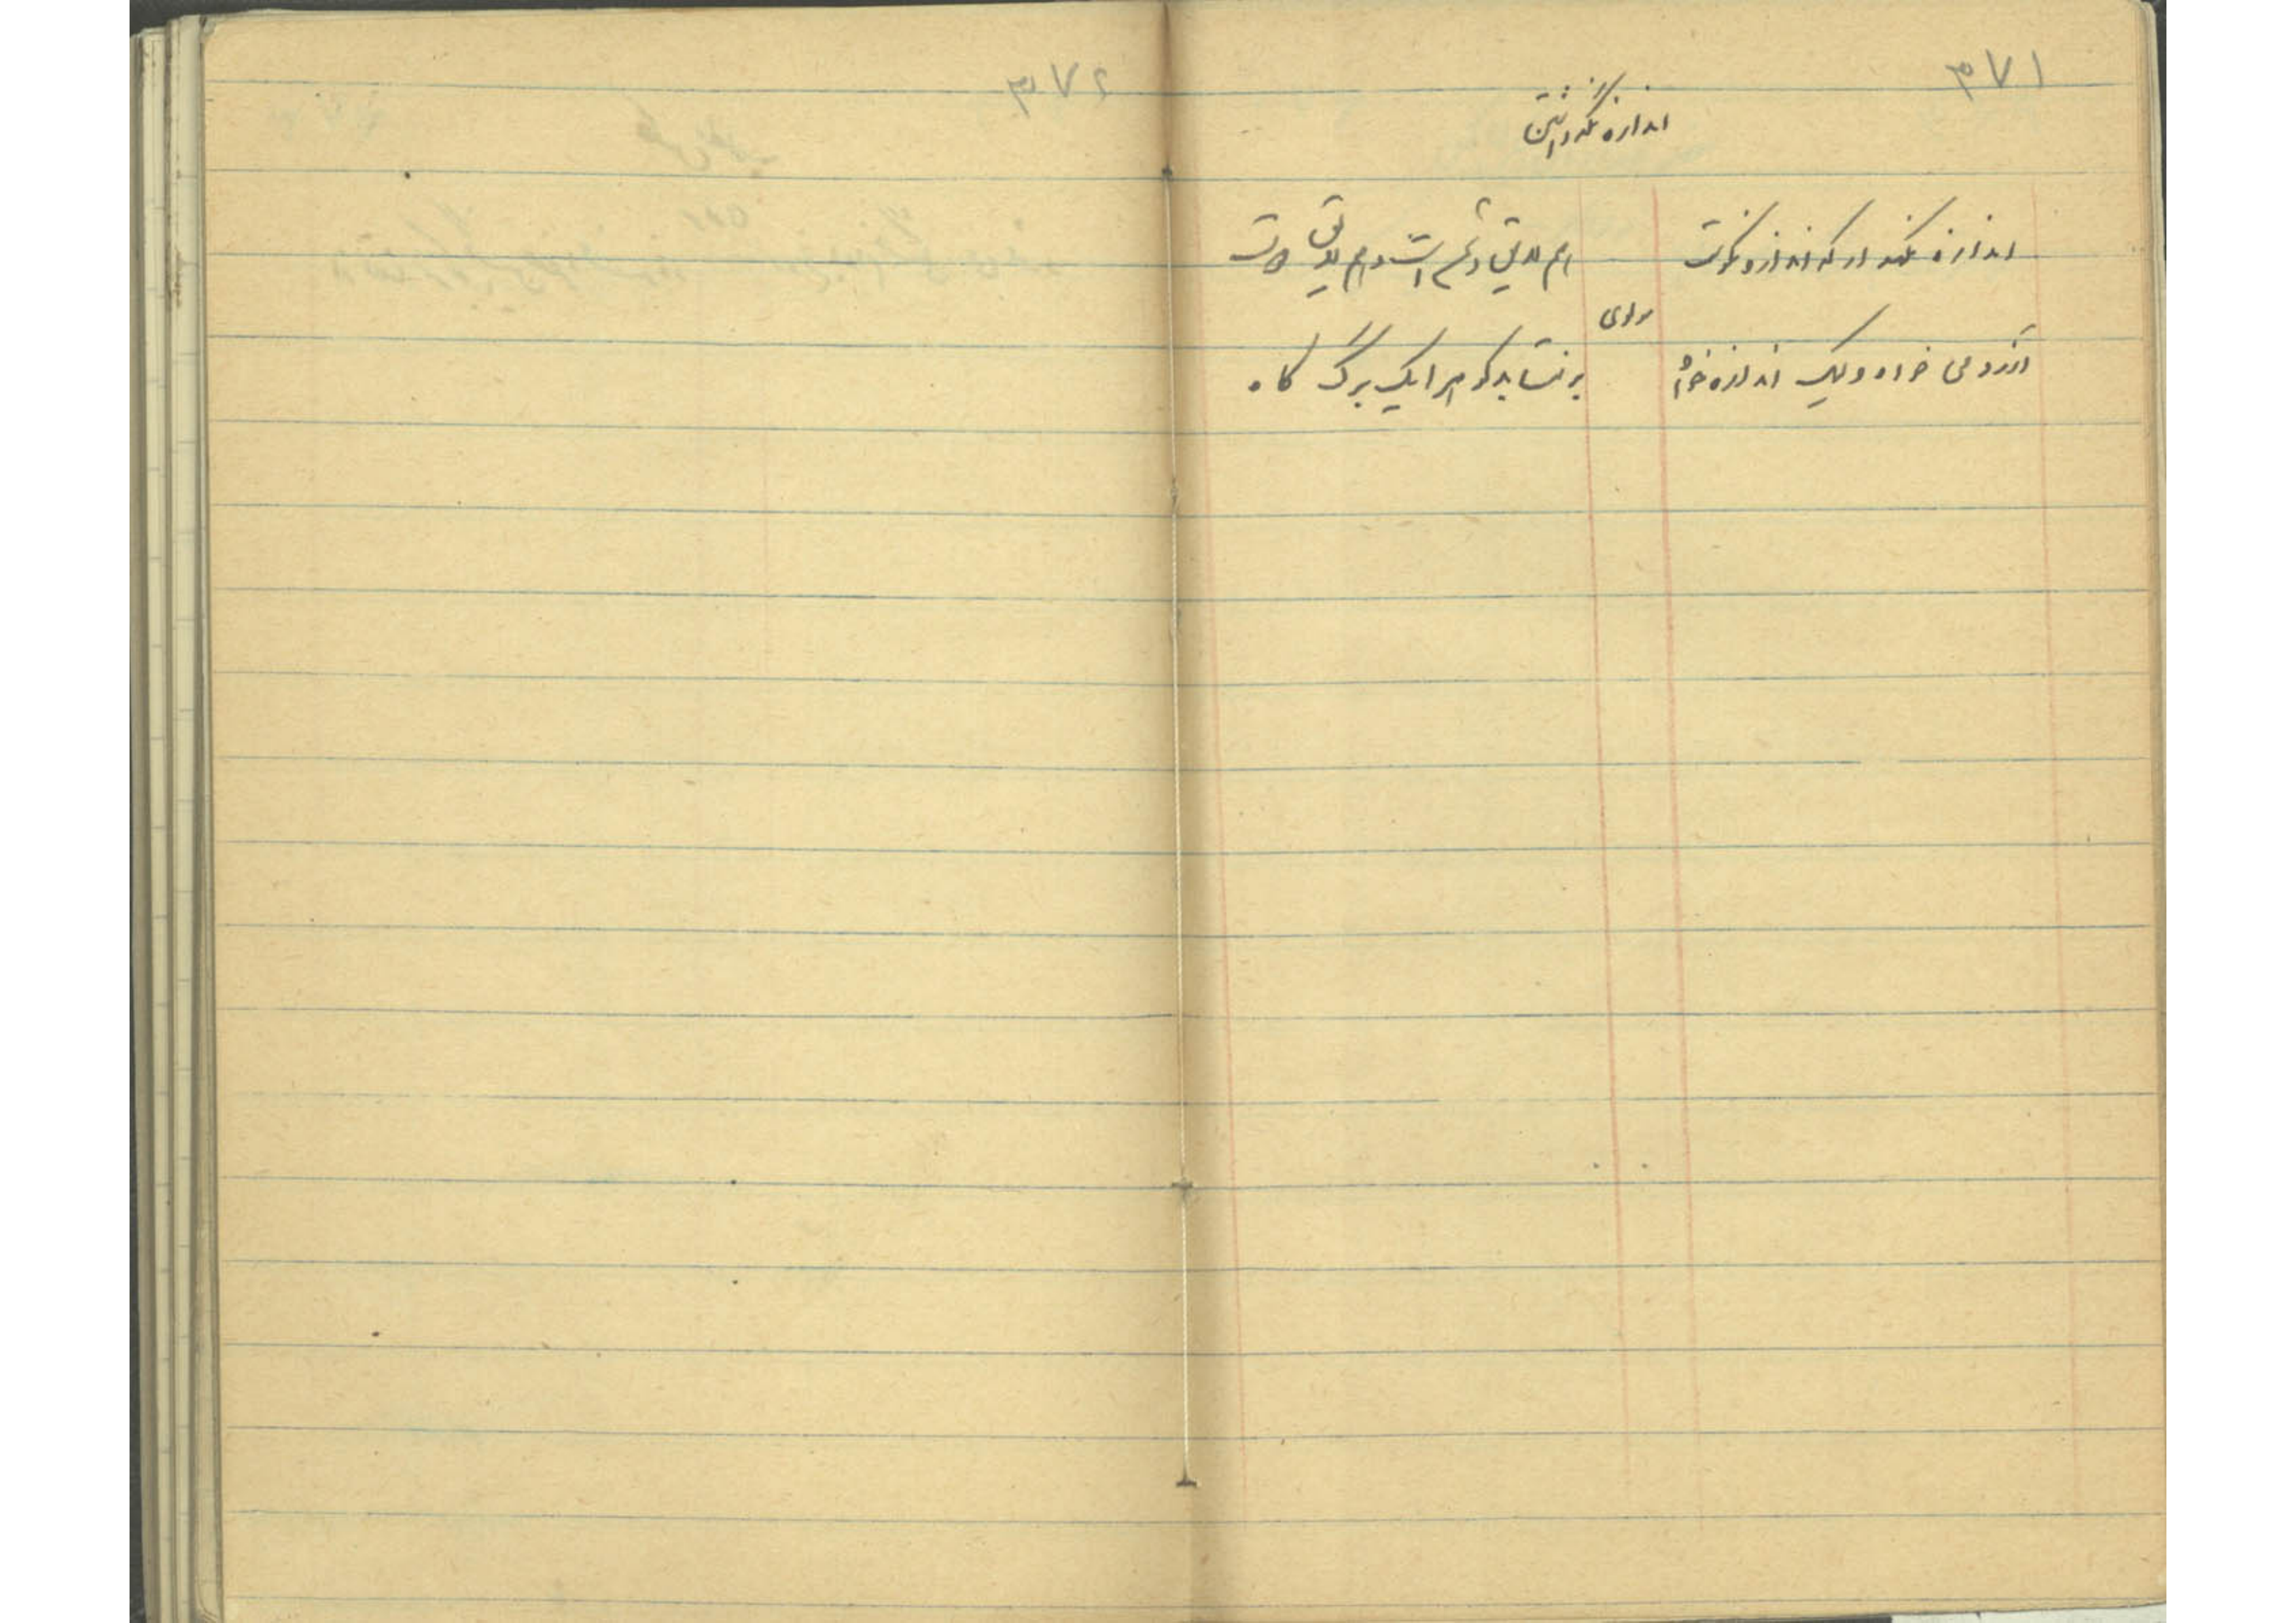 ۳۷۱
اندازه نگه داشتن
اندازه نگهدار که اندازه نکوست
هم لایق دشمن است و هم لایق دوست
مولوی
آرزو می خواه و لیک اندازه خواه
بر نتابد کوه را یک برگ کاه
۳۷۲